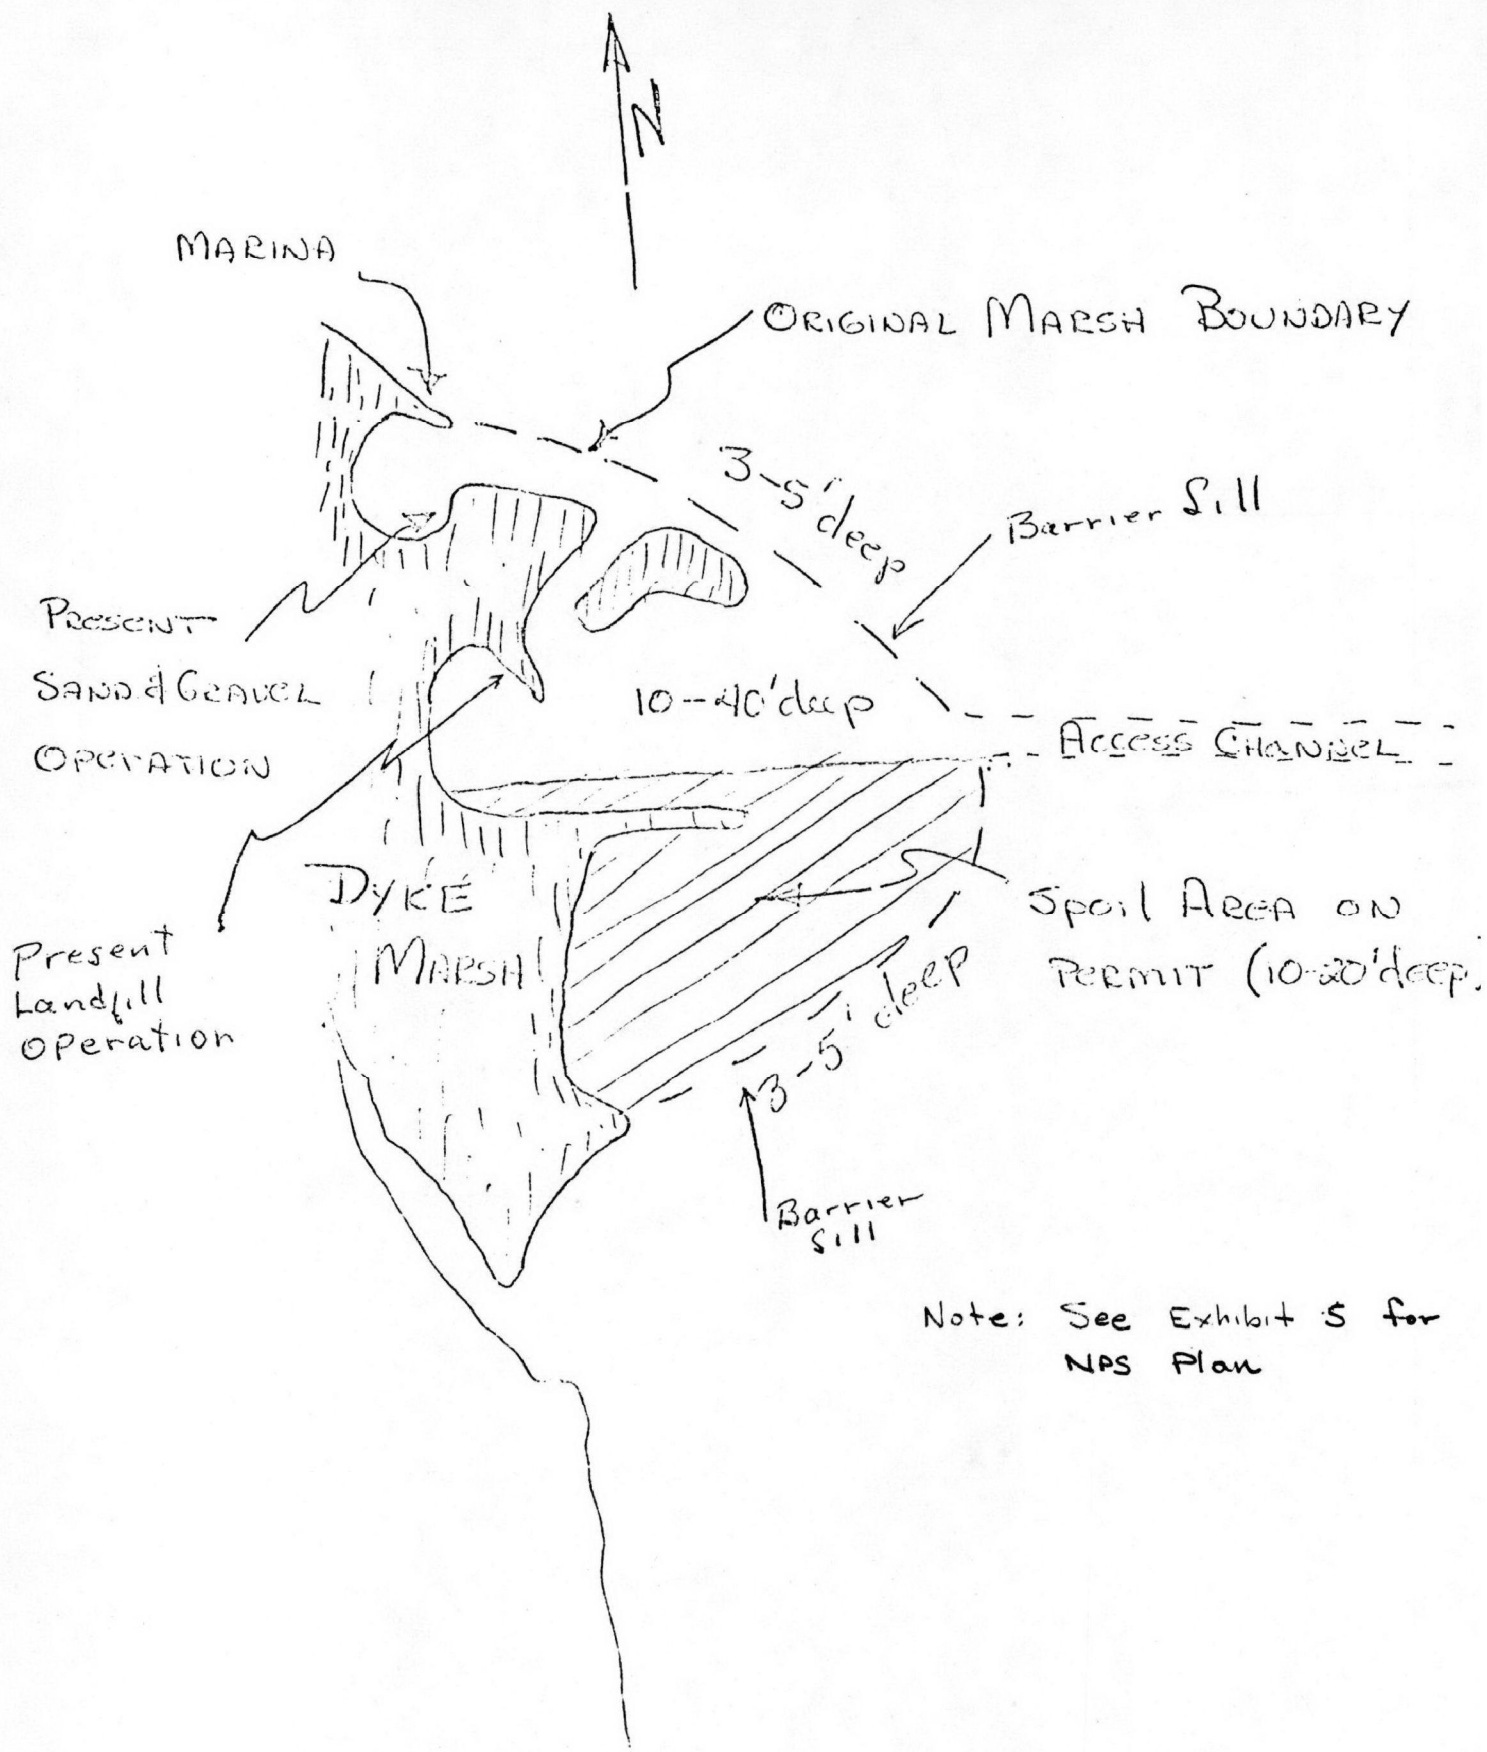 N
MARINA
ORIGINAL MARSH BOUNDARY
3-5' deep
Barrier Sill
PRESENT
SAND & GRAVEL
OPERATION
10-40' deep
ACCESS CHANNEL
DYKE
MARSH
Present
Landfill
Operation
Spoil AREA ON
PERMIT (10-20' deep)
3-5' deep
Barrier
Sill
Note: See Exhibit 5 for
NPS Plan